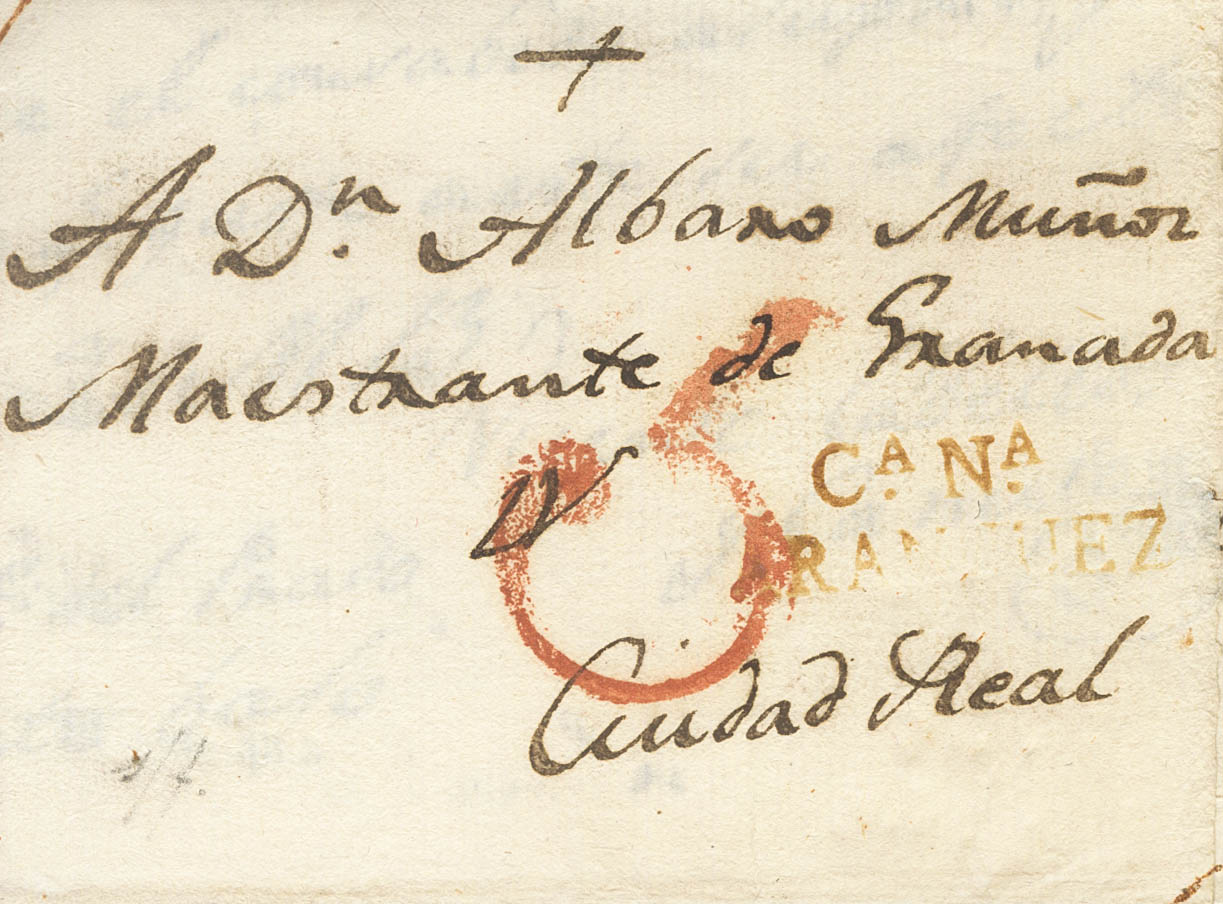 +
A Dⁿ. Albaro Muñoz
Maestrante de Granada
Cᴬ. Nᴬ.
ARANJUEZ
Ciudad Real